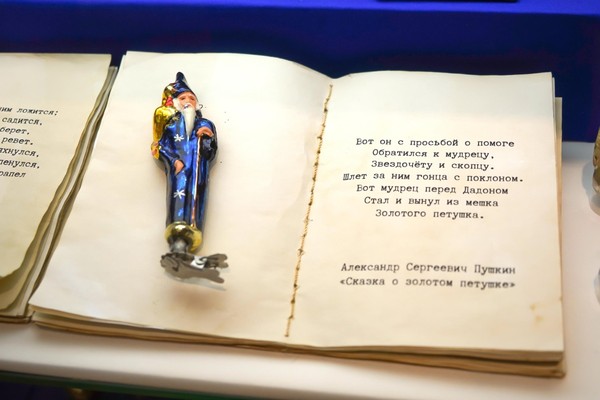 ложится;
садится,
берет.
ревет.
Вот он с просьбой о помоге
Обратился к мудрецу,
Звездочёту и скопцу.
Шлет за ним гонца с поклоном.
Вот мудрец перед Дадоном
Стал и вынул из мешка
Золотого петушка.
Александр Сергеевич Пушкин
«Сказка о золотом петушке»